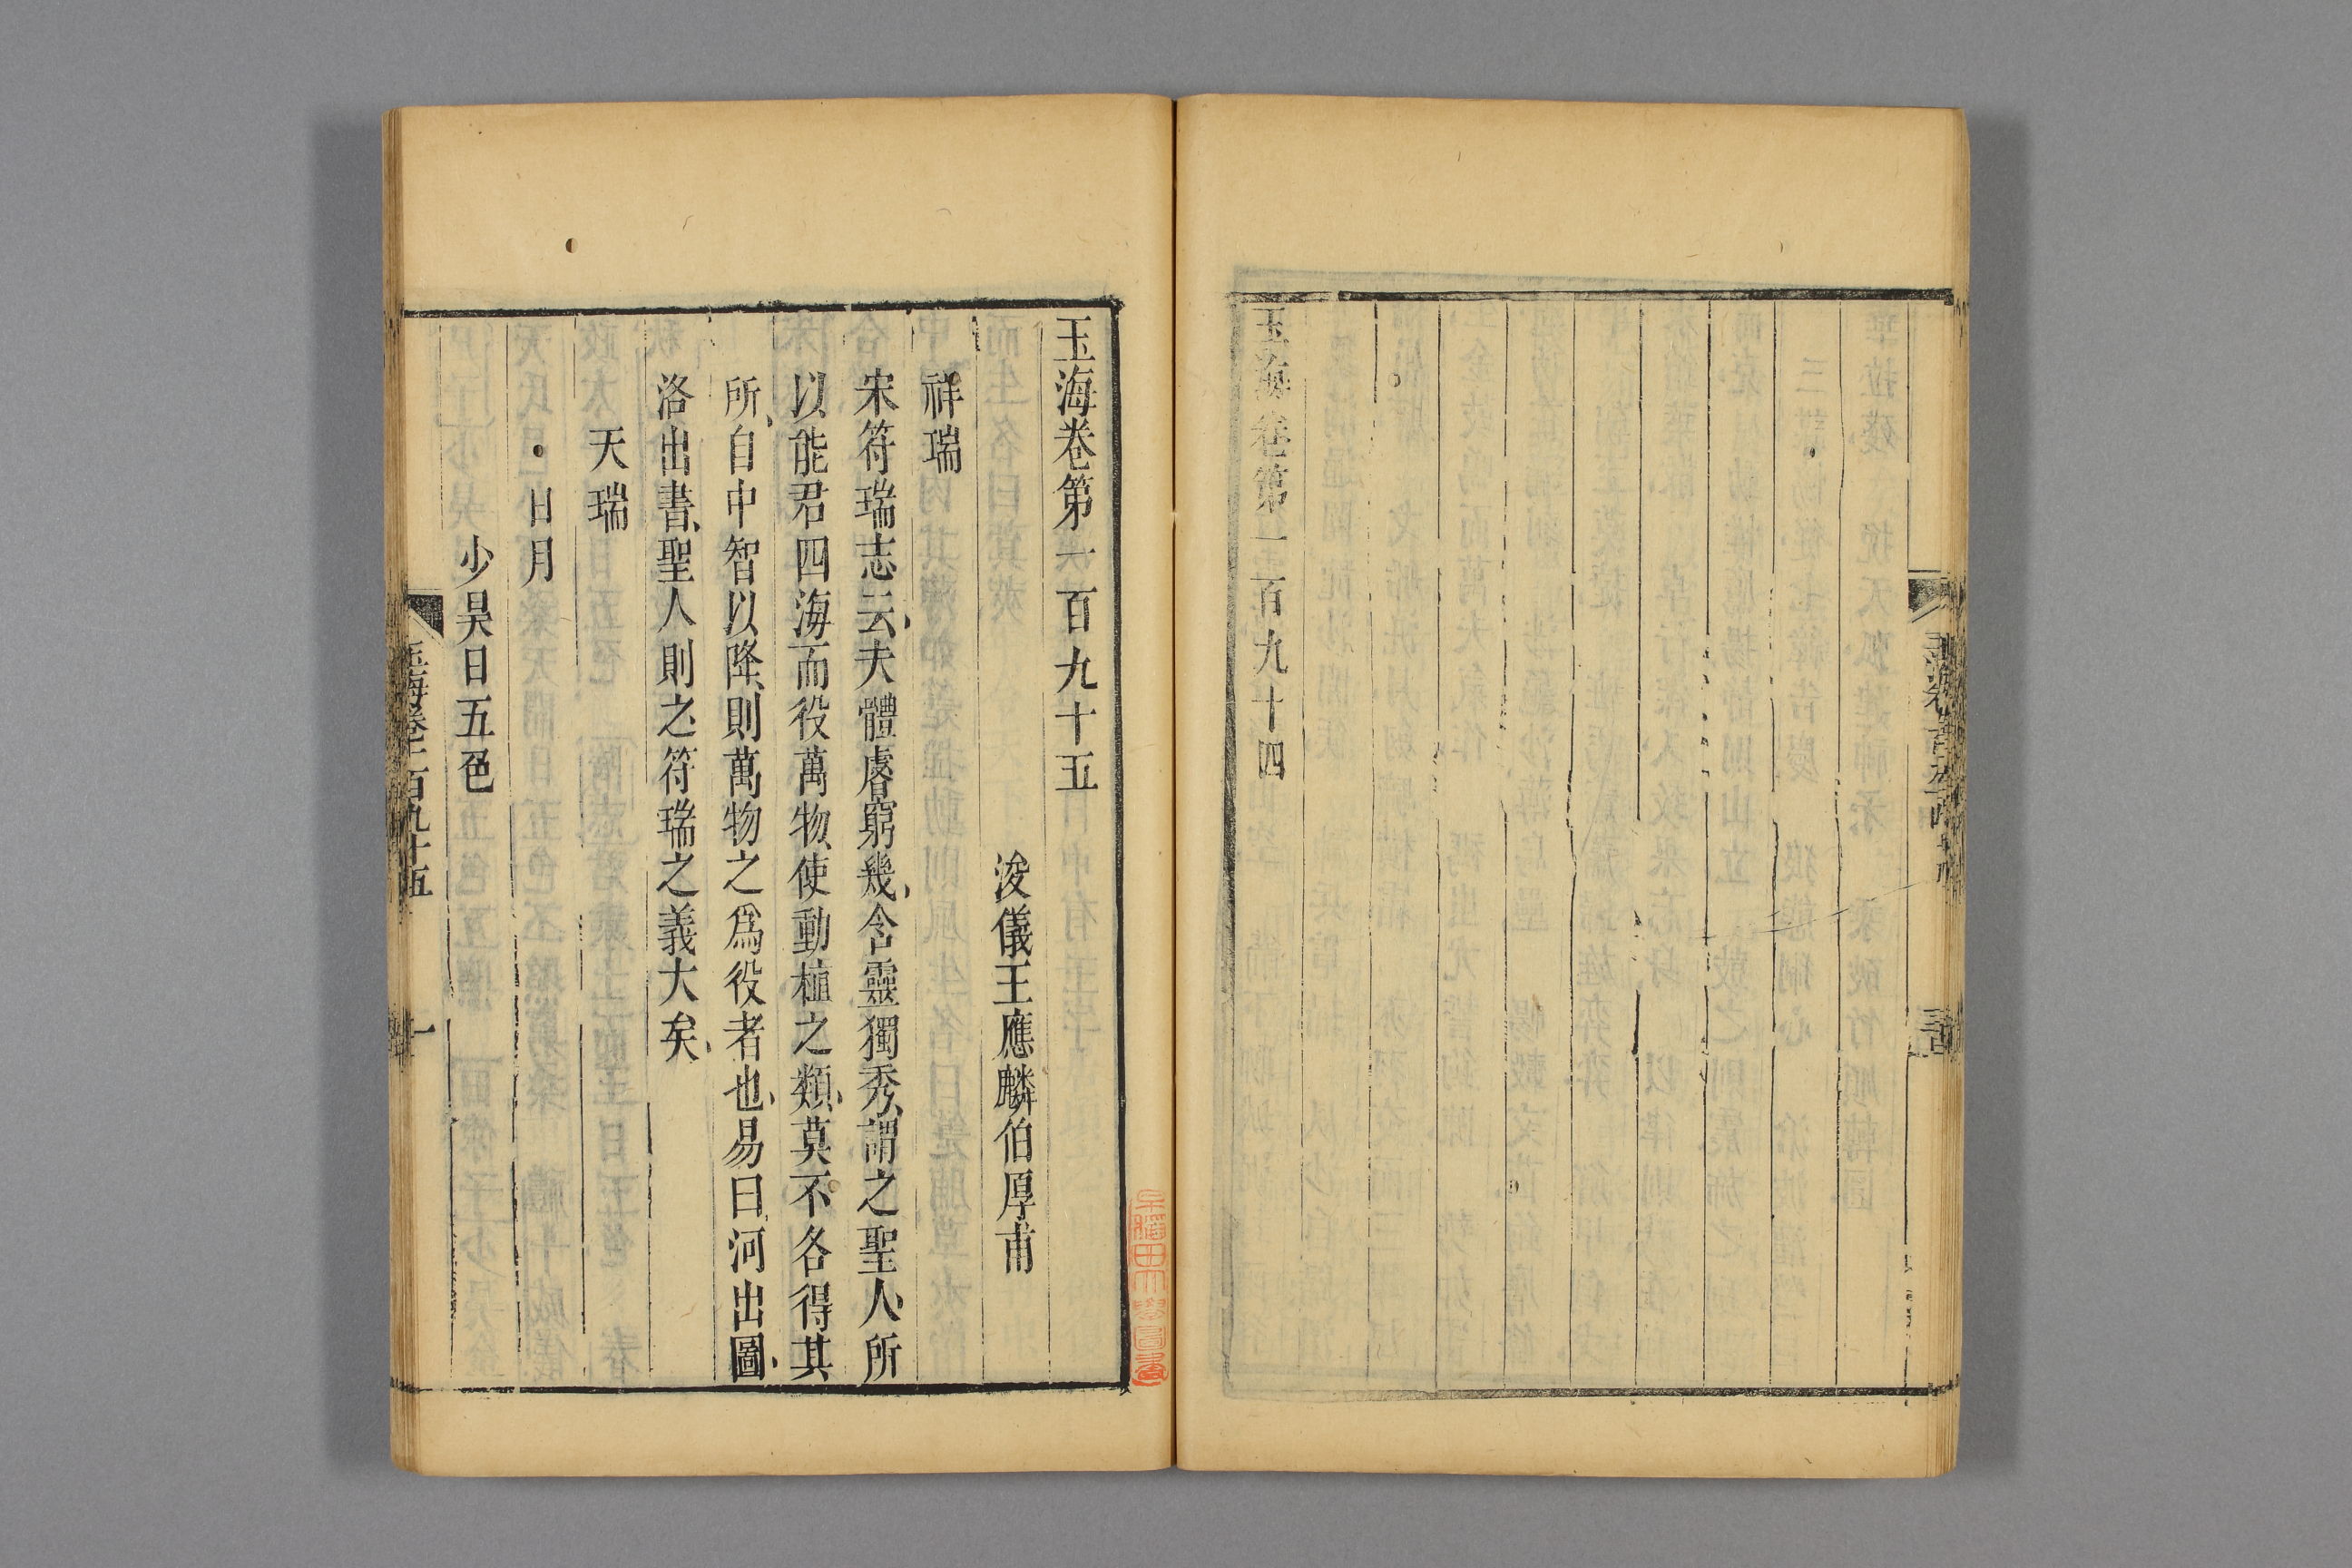 玉海卷第一百九十四
玉海卷第一百九十五
浚儀王應麟伯厚甫
祥瑞
宋符瑞志云夫體睿窮幾含靈獨秀謂之聖人所
以能君四海而役萬物使動植之類莫不各得其
所自中智以降則萬物之爲役者也易曰河出圖
洛出書聖人則之符瑞之義大矣
天瑞
日月
少昊日五色
玉海卷一百九十五
一
早稻田大學圖書